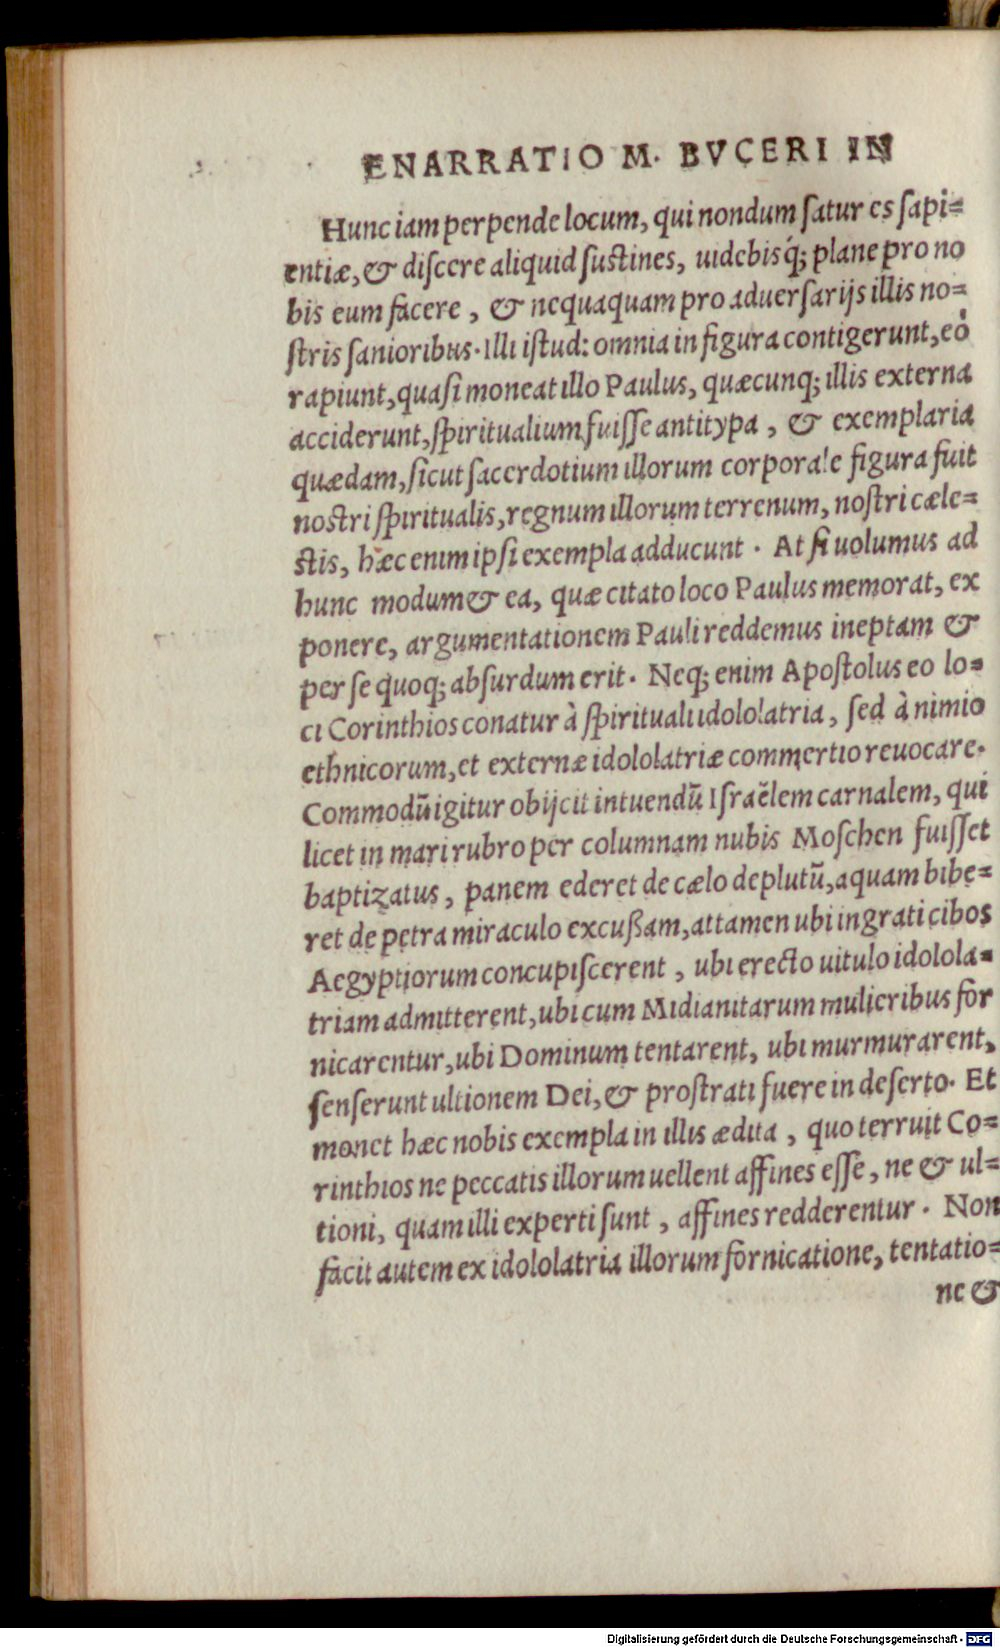 ENARRATIO M. BVCERI IN
Hunc iam perpende locum, qui nondum ſatur es ſapi=
entiæ, & diſcere aliquid ſustines, uidebis q́; plane pro no
bis eum facere, & nequaquam pro aduerſarijs illis no=
ſtris ſanioribus. Illi iſtud: omnia in figura contigerunt, eó
rapiunt, quaſi moneat illo Paulus, quæcunq; illis externa
acciderunt, ſpiritualium fuiſſe antitypa, & exemplaria
quædam, ſicut ſacerdotium illorum corporale figura fuit
nostri ſpiritualis, regnum illorum terrenum, noſtri cæle=
ſtis, hæc enim ipſi exempla adducunt. At ſi uolumus ad
hunc modum & ea, quæ citato loco Paulus memorat, ex
ponere, argumentationem Pauli reddemus ineptam &
per ſe quoq; abſurdum erit. Neq; enim Apoſtolus eo lo=
ci Corinthios conatur à ſpirituali idololatria, ſed à nimio
ethnicorum, et externæ idololatriæ commertio reuocare.
Commodũ igitur obijcit intuendũ Iſraẽlem carnalem, qui
licet in mari rubro per columnam nubis Moſchen fuiſſet
baptizatus, panem ederet de cælo deplutũ, aquam bibe=
ret de petra miraculo excußam, attamen ubi ingrati cibos
Aegyptiorum concupiſcerent, ubi erecto uitulo idolola=
triam admitterent, ubi cum Midianitarum mulieribus for
nicarentur, ubi Dominum tentarent, ubi murmurarent,
ſenſerunt ultionem Dei, & proſtrati fuere in deſerto. Et
monet hæc nobis exempla in illis ædita, quo terruit Co=
rinthios ne peccatis illorum uellent affines eſſe, ne & ul=
tioni, quam illi experti ſunt, affines redderentur. Non
facit autem ex idololatria illorum fornicatione, tentatio=
ne &
Digitalisierung gefördert durch die Deutsche Forschungsgemeinschaft - DFG